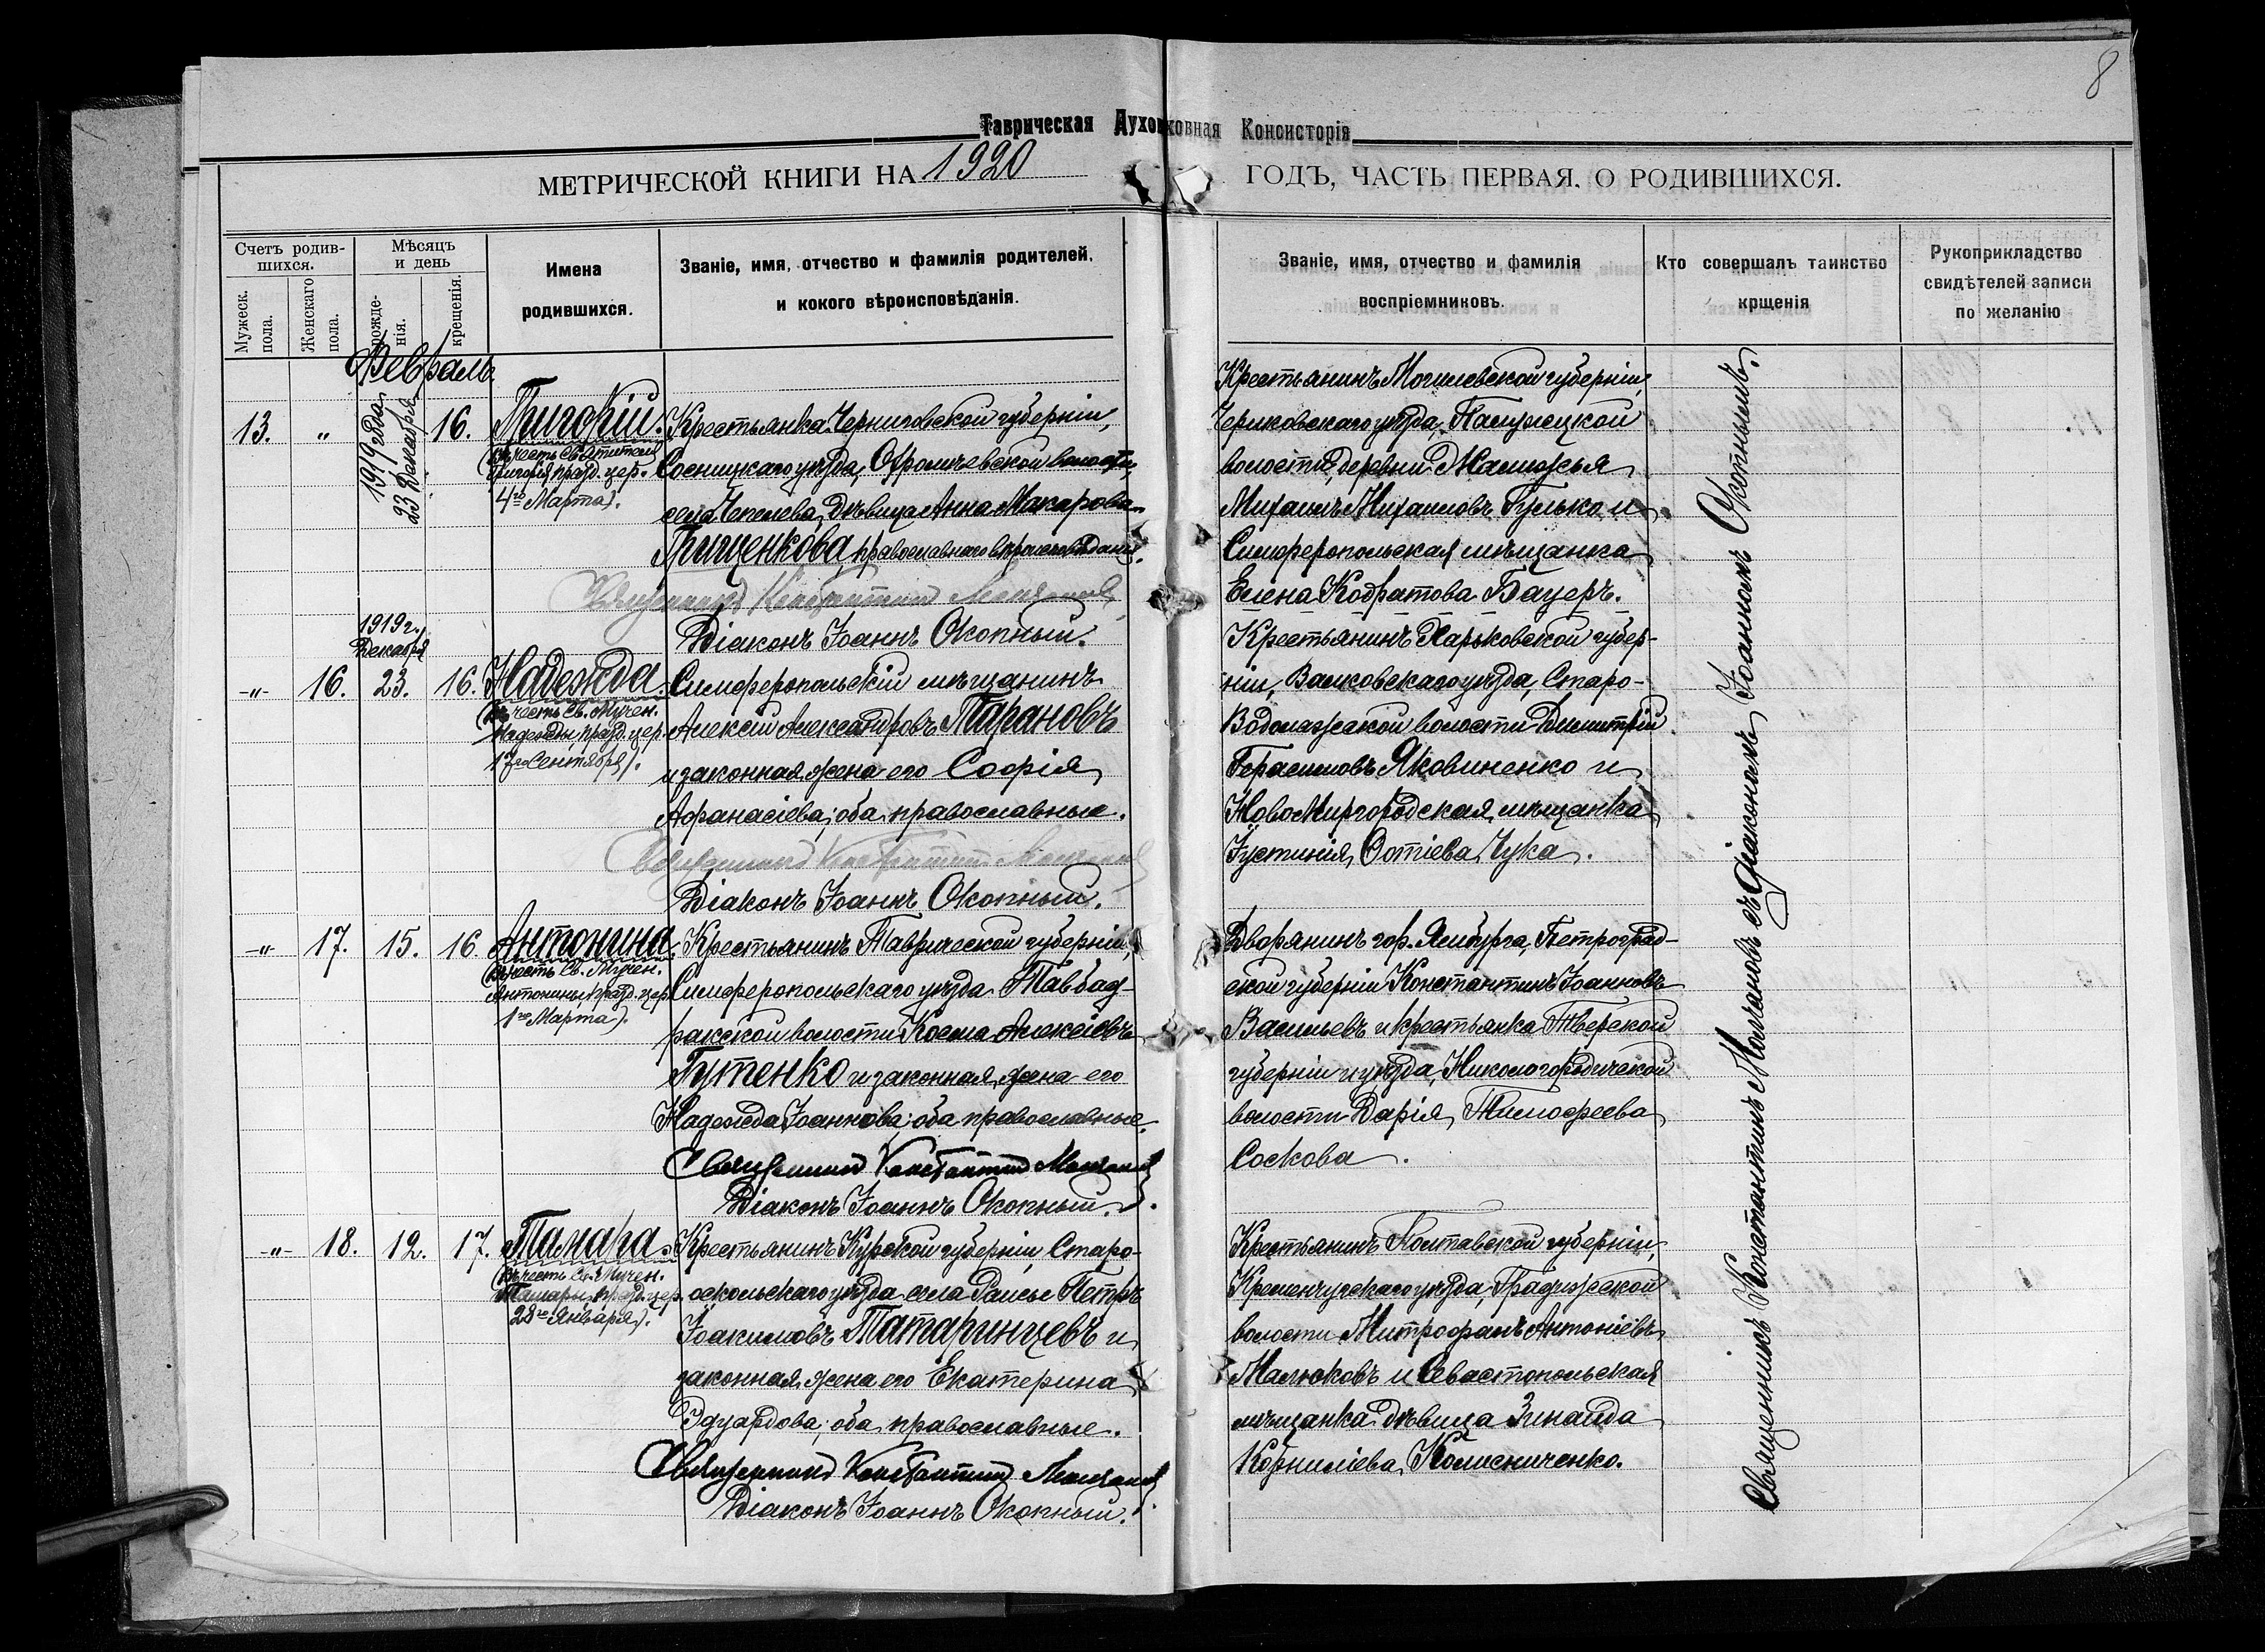 8
Таврическая Духовная Консисторія
МЕТРИЧЕСКОЙ КНИГИ НА 1920 ГОДЪ, ЧАСТЬ ПЕРВАЯ. О РОДИВШИХСЯ.
Счетъ родив-
шихся.
Мужеск.
пола.
Женскаго
пола.
Мѣсяцъ
и день
рожде-
нія.
крещенія.
Имена
родившихся.
Званіе, имя, отчество и фамилія родителей,
и кокого вѣроисповѣданія.
Званіе, имя, отчество и фамилія
воспріемниковъ.
Кто совершалъ таинство
крщенія
Рукоприкладство
свидѣтелей записи
по желанію
Февраль.
13. „ 1919 года 23 Декабря 16.
Григорій.
(Въ честь Святителя
Григорія, празд. цер.
4го Марта).
Крестьянка Черниговской губерніи,
Сосницкаго уѣзда, волости,
села Чепелева, дѣвица Анна Макарова
Грищенкова, православнаго вѣроисповѣданія.
Священникъ Константинъ Молчановъ
Діаконъ Іоаннъ Окопный.
Крестьянинъ Могилевской губерніи,
Чериковскаго уѣзда,
волости, деревни
Михаилъ Михаиловъ Гулько и
Симферопольская мѣщанка
Елена Кодратова Бауеръ.
1919 г.
Декабря
-„- 16. 23. 16.
Надежда.
(Въ честь Св. Мучен.
Надежды, празд. цер.
17го Сентября).
Симферопольскій мѣщанинъ
Алексій Александровъ Тарановъ
и законная жена его Софія
Афанасіева; оба православные.
Священникъ Константинъ Молчановъ
Діаконъ Іоаннъ Окопный.
Крестьянинъ Харьковской губер-
ніи, Валковскаго уѣзда, Старо-
Водолажской волости Димитрій
Герасимовъ Яковиненко и
НовоМиргородская мѣщанка
Іустинія Фотіева Чука.
-„- 17. 15. 16.
Антонина.
(Въ честь Св. Мучен.
Антонины, празд. цер.
1го Марта).
Крестьянинъ Таврической губерніи,
Симферопольскаго уѣзда Тавбад-
ракской волости Косма Алексіевъ
Гутенко и законная жена его
Надежда Іоаннова; оба православные.
Священникъ Константинъ Молчановъ
Діаконъ Іоаннъ Окопный.
Дворянинъ гор. Ямбурга, Петроград-
ской губерніи Константинъ Іоанновъ
Васильевъ и крестьянка Тверской
губерніи и уѣзда, Никологородической
волости Дарія Тимофеева
Соскова.
-„- 18. 12. 17.
Тамара.
(Въ честь Св. Мучен.
Тамары, празд. цер.
28го Января).
Крестьянинъ Курской губерніи, Старо-
оскольскаго уѣзда села Петръ
Іоакимовъ Татаринцевъ и
законная жена его Екатерина
Эдуардова; оба православные.
Священникъ Константинъ Молчановъ
Діаконъ Іоаннъ Окопный.
Крестьянинъ Полтавской губерніи,
Кременчугскаго уѣзда, Градижской
волости Митрофанъ Антоніевъ
Малюковъ и Севастопольская
мѣщанка дѣвица Зинаида
Корниліева Колисниченко.
Священникъ Константинъ Молчановъ съ діакономъ Іоанномъ Окопнымъ.